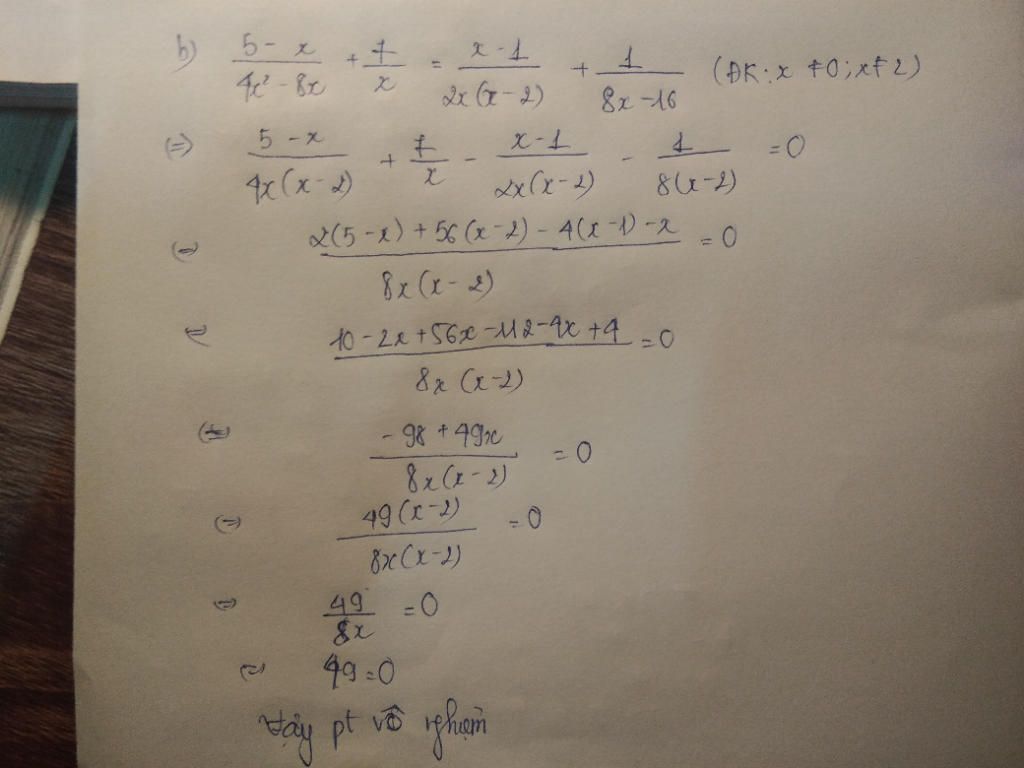 b) (5 - x)/(4x² - 8x) + 7/x = (x - 1)/(2x(x - 2)) + 1/(8x - 16) (ĐK: x ≠ 0; x ≠ 2)
(=) (5 - x)/(4x(x - 2)) + 7/x - (x - 1)/(2x(x - 2)) - 1/(8(x - 2)) = 0
(=) (2(5 - x) + 56(x - 2) - 4(x - 1) - x)/(8x(x - 2)) = 0
(=) (10 - 2x + 56x - 112 - 4x + 4)/(8x(x - 2)) = 0
(=) (-98 + 49x)/(8x(x - 2)) = 0
(=) 49(x - 2)/(8x(x - 2)) = 0
(=) 49/8x = 0
(=) 49 = 0
Vậy pt vô nghiệm